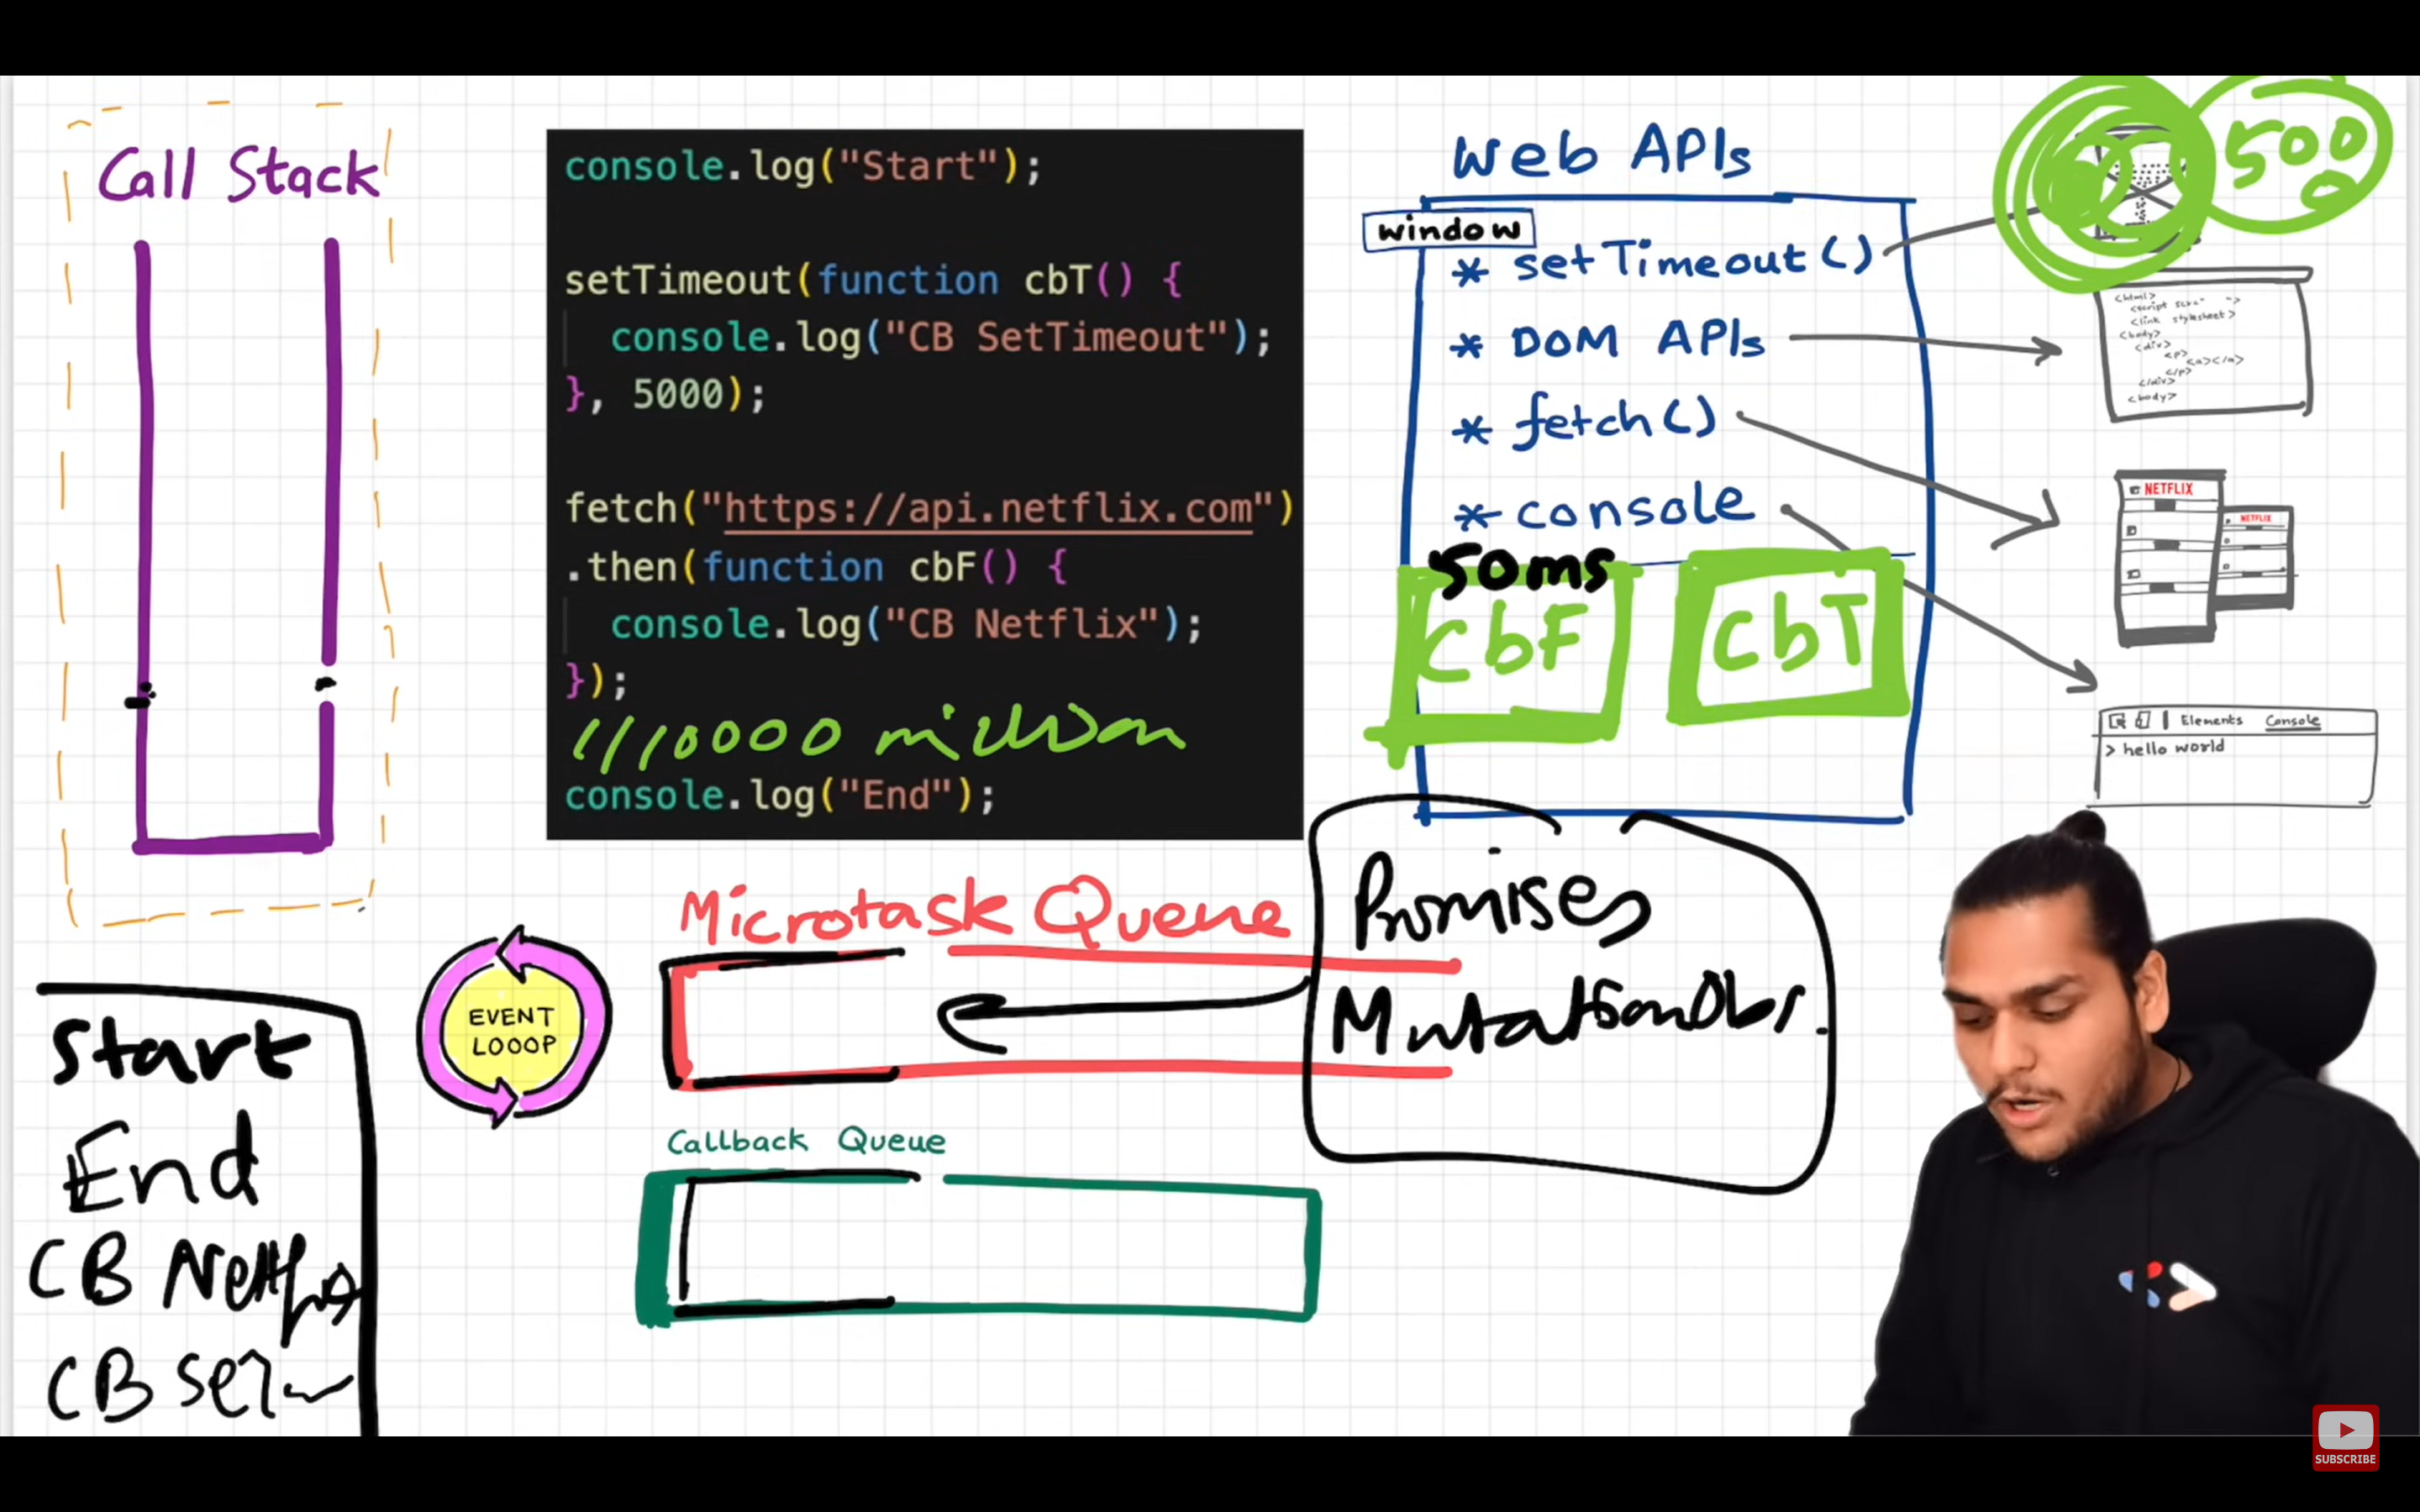 Call Stack
console.log("Start");
setTimeout(function cbT() {
console.log("CB SetTimeout");
}, 5000);
fetch("https://api.netflix.com")
.then(function cbF() {
console.log("CB Netflix");
});
million
console.log("End");
Web APIs
window
* setTimeout()
* DOM APIs
* fetch()
* console
50ms
CbF
CbT
5000
<html>
<link stylesheet>
<body>
<div>
<p>
<a></a>
</p>
</div>
<body>
NETFLIX
NETFLIX
Elements Console
> hello world
Promises
MutationObs.
Microtask Queue
EVENT
LOOOP
Callback Queue
Start
End
CB Netflix
CB set
SUBSCRIBE